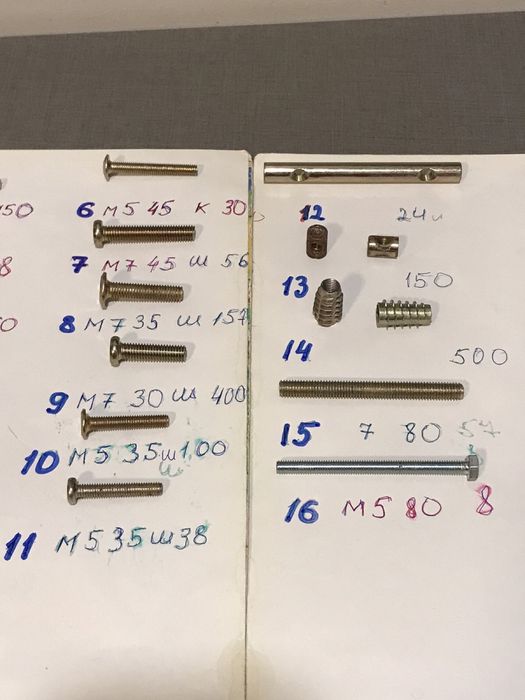 150
6 М5 45 К 30
8
7 М7 45 Ш 56
0
8 М7 35 Ш 157
9 М7 30 Ш 400
10 М5 35 Ш 100
ш
11 М5 35 Ш 38
12 24
13 150
14 500
15 7 80 57
16 М5 80 8